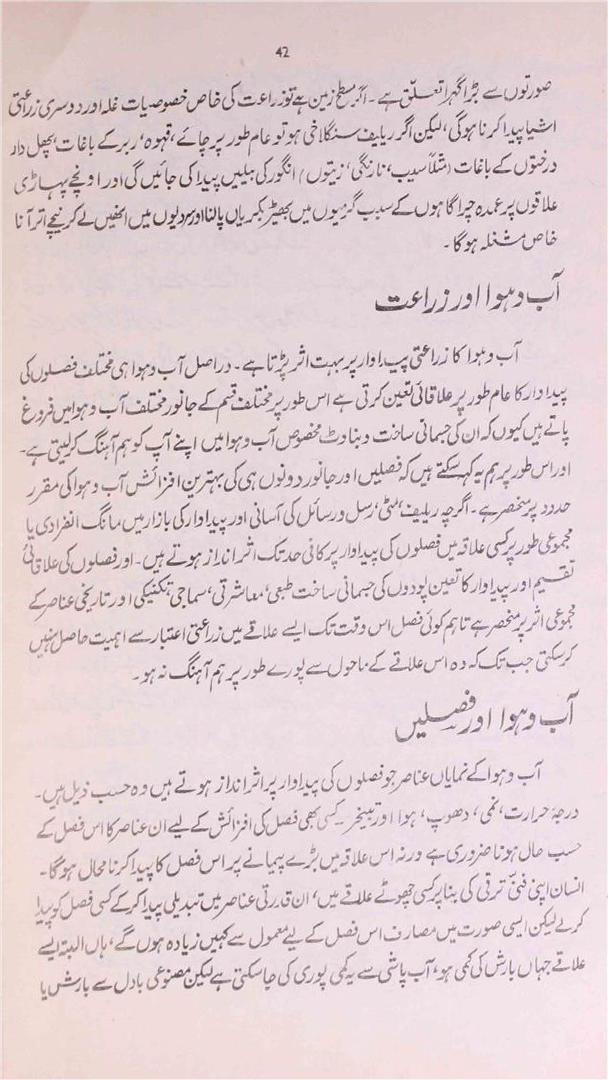 42
صورتوں سے بڑا گہرا تعلّق ہے۔ اگر سطح زمین ہے تو زراعت کی خاص خصوصیات غلہ اور دوسری زراعتی
اشیا پیدا کرنا ہوگی، لیکن اگر ریلیف سنگلاخی ہو تو عام طور پر چائے، قہوہ، ربر کے باغات، پھل دار
درختوں کے باغات (مثلاً سیب، نارنگی، زیتون) انگور کی بیلیں پیدا کی جائیں گی اور اونچے پہاڑی
علاقوں پر عمدہ چراگاہوں کے سبب گرمیوں میں بھیڑ بکریاں پالنا اور سردیوں میں انھیں لے کر نیچے اتر آنا
خاص مشغلہ ہوگا۔
آب و ہوا اور زراعت
آب و ہوا کا زراعتی پیداوار پر بہت اثر پڑتا ہے۔ دراصل آب و ہوا ہی مختلف فصلوں کی
پیداوار کا عام طور پر علاقائی تعین کرتی ہے اس طور پر مختلف قسم کے جانور مختلف آب و ہوا میں فروغ
پاتے ہیں کیوں کہ ان کی جسمانی ساخت و بناوٹ مخصوص آب و ہوا میں اپنے آپ کو ہم آہنگ کر لیتی ہے۔
اور اس طور پر ہم یہ کہہ سکتے ہیں کہ فصلیں اور جانور دونوں ہی کی بہترین افزائش آب و ہوا کی مقرر
حدود پر منحصر ہے۔ اگرچہ ریلیف، مٹی، رسل و رسائل کی آسانی اور پیداوار کی بازار میں مانگ انفرادی یا
مجموعی طور پر کسی علاقہ میں فصلوں کی پیداوار پر کافی حد تک اثر انداز ہوتے ہیں۔ اور فصلوں کی علاقائی
تقسیم اور پیداوار کا تعین پودوں کی جسمانی ساخت طبعی، معاشرتی، سماجی تکنیکی اور تاریخی عناصر کے
مجموعی اثر پر منحصر ہے تاہم کوئی فصل اس وقت تک ایسے علاقے میں زراعتی اعتبار سے اہمیت حاصل نہیں
کرسکتی جب تک کہ وہ اس علاقے کے ماحول سے پورے طور پر ہم آہنگ نہ ہو۔
آب و ہوا اور فصلیں
آب و ہوا کے نمایاں عناصر جو فصلوں کی پیداوار پر اثر انداز ہوتے ہیں وہ حسب ذیل ہیں۔
درجۂ حرارت، نمی، دھوپ، ہوا اور تبخیر۔ کسی بھی فصل کی افزائش کے لیے ان عناصر کا اس فصل کے
حسب حال ہونا ضروری ہے ورنہ اس علاقہ میں بڑے پیمانے پر اس فصل کا پیدا کرنا محال ہوگا۔
انسان اپنی فنی ترقی کی بنا پر کسی چھوٹے علاقے میں، ان قدرتی عناصر میں تبدیلی پیدا کر کے کسی فصل کو پیدا
کرلے لیکن ایسی صورت میں مصارف اس فصل کے لیے معمول سے کہیں زیادہ ہوں گے، ہاں البتہ ایسے
علاقے جہاں بارش کی کمی ہو، آب پاشی سے یہ کمی پوری کی جاسکتی ہے لیکن مصنوعی بادل سے بارش یا